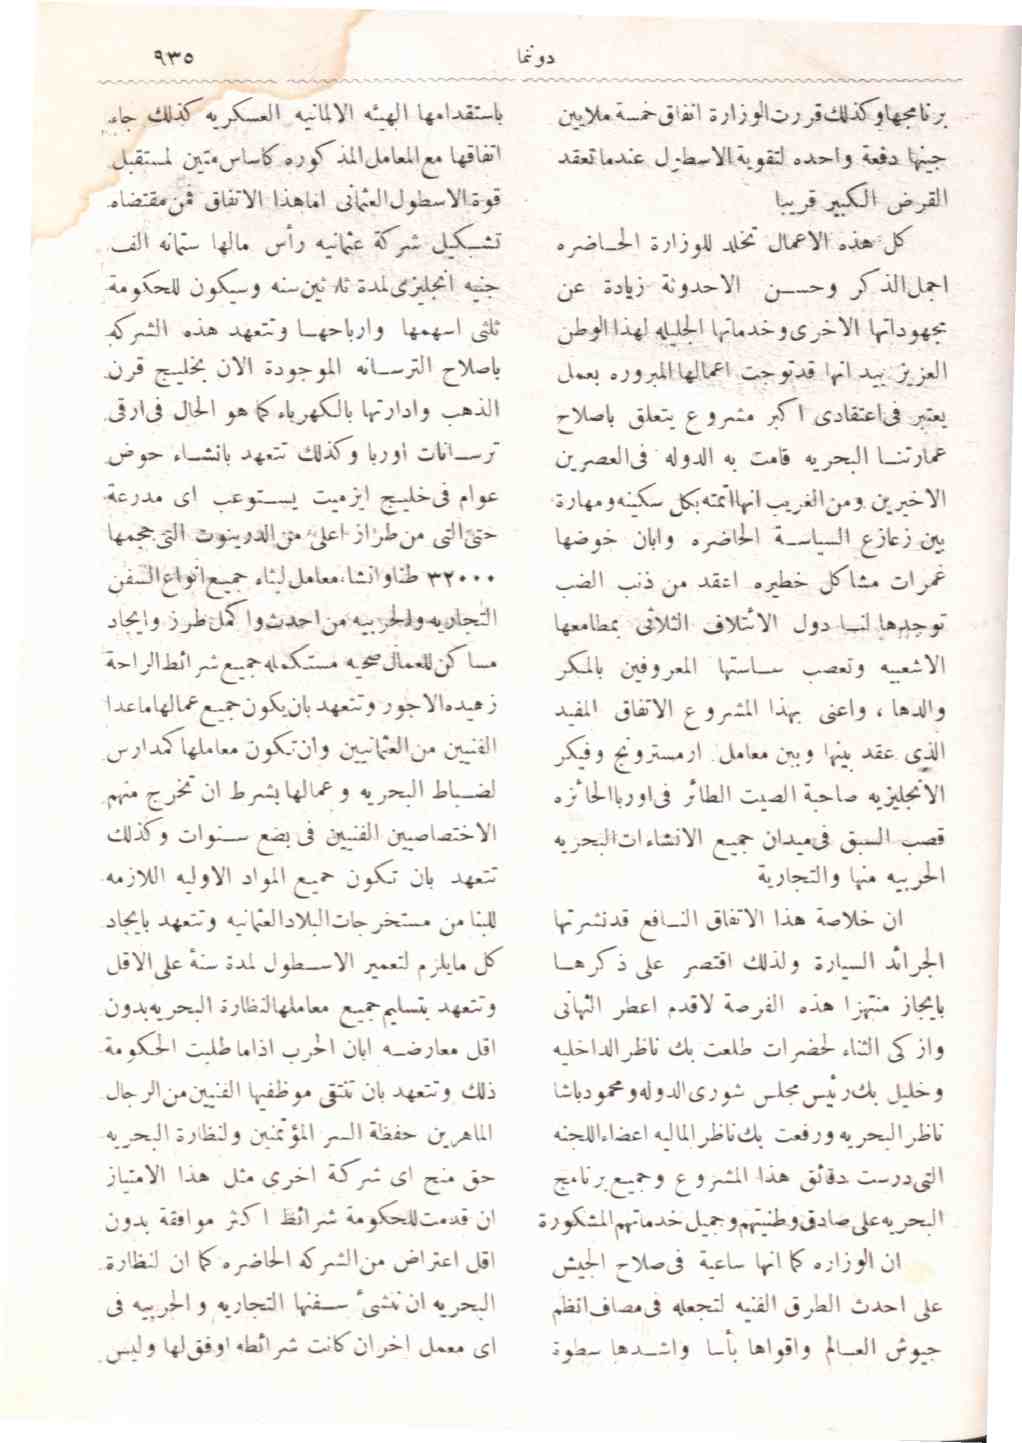 دونما
٩٣٥
برنامجها وكذلك قررت الوزارة انفاق خمسة ملايين
جينها دفعة واحده لتقوية الاسطول عندما تعقد
القرض الكبير قريبا
كل هذه الاعمال تخلد للوزارة الحاضره
اجمل الذكر وحسن الاحدوثة زيادة عن
مجهوداتها الاخرى وخدماتها الجليله لهذا الوطن
العزيز بيد انها قد توجت اعمالها المبروره بعمل
يعتبر فى اعتقادى اكبر مشروع يتعلق باصلاح
عمارتنا البحريه قامت به الدوله فى العصرين
الاخيرين ومن الغريب انها اتمته بكل سكينه ومهارة
بين زعازع السياسة الحاضره وابان خوضها
غمرات مشاكل خطيره اعقد من ذنب الضب
توجدها لنا دول الائتلاف الثلاثى بمطامعها
الاشعبيه وتعصب ساستها المعروفين بالمكر
والدها ، واعنى بهذا المشروع الاتفاق المفيد
الذى عقد بينها وبين معامل ارمسترونج وفيكر
الانجليزيه صاحبة الصيت الطائر فى اوربا الحائزه
قصب السبق فى ميدان جميع الانشاءات البحريه
الحربيه منها والتجارية
ان خلاصة هذا الاتفاق النافع قد نشرتها
الجرائد السيارة ولذلك اقتصر على ذكرها
بايجاز منتهزا هذه الفرصة لاقدم اعطر التهانى
وازكى الثناء لحضرات طلعت بك ناظر الداخليه
وخليل بك رئيس مجلس شورى الدوله ومحمود باشا
ناظر البحريه ورفعت بك ناظر الماليه اعضاء اللجنه
التى درست دقائق هذا المشروع وجميع برنامج
البحريه على صادق وطنيتهم وجميل خدماتهم المشكورة
ان الوزاره كما انها ساعية فى صلاح الجيش
على احدث الطرق الفنيه لتجعله فى مصاف انظم
جيوش العالم واقواها بأسا واشدها سطوة
باستقدامها الهيئه الالمانيه العسكريه كذلك جاء
اتفاقها مع المعامل المذكوره كاساس متين لمستقبل
قوة الاسطول العثمانى اما هذا الاتفاق فمن مقتضاه
تشكيل شركة عثمانيه رأس مالها ستمائه الف
جنيه انجليزى لمدة ثلاثين سنه وسيكون للحكومة
ثلثى اسهمها وارباحها وتتعهد هذه الشركه
باصلاح الترسانه الموجودة الان بخليج قرن
الذهب وادارتها بالكهرباء كما هو الحال فى ارقى
ترسانات اوربا وكذلك تتعهد بانشاء حوض
عوام فى خليج ازميت يستوعب اى مدرعة
حتى التى من طراز اعلى من الدرينوت التى حجمها
٣٢٠٠٠ طنا وانشاء معامل لبناء جميع انواع السفن
التجاريه والحربيه من احدث واكمل طرز وايجاد
مساكن للعمال صحيه مستكمله جميع شرائط الراحة
زهيده الاجور وتتعهد بان يكون جميع عمالها ماعدا
الفنيين من العثمانيين وان تكون معاملها كمدارس
لضباط البحريه وعمالها بشرط ان تخرج منهم
الاختصاصيين الفنيين فى بضع سنوات وكذلك
تتعهد بان تكون جميع المواد الاوليه اللازمه
للبنا من مستخرجات البلاد العثمانيه وتتعهد بايجاد
كل مايلزم لتعمير الاسطول لمدة سنة على الاقل
وتتعهد بتسليم جميع معاملها لنظارة البحريه بدون
اقل معارضه ابان الحرب اذاما طلبت الحكومة
ذلك وتتعهد بان تنتقى موظفيها الفنيين من الرجال
الماهرين حفظة السر المؤتمنين ولنظارة البحريه
حق منح اى شركة اخرى مثل هذا الامتياز
ان قدمت للحكومة شرائط اكثر موافقة بدون
اقل اعتراض من الشركه الحاضره كما ان لنظارة
البحريه ان تنشىء سفنها التجاريه والحربيه فى
اى معمل اخر ان كانت شرائطه اوفق لها وليس